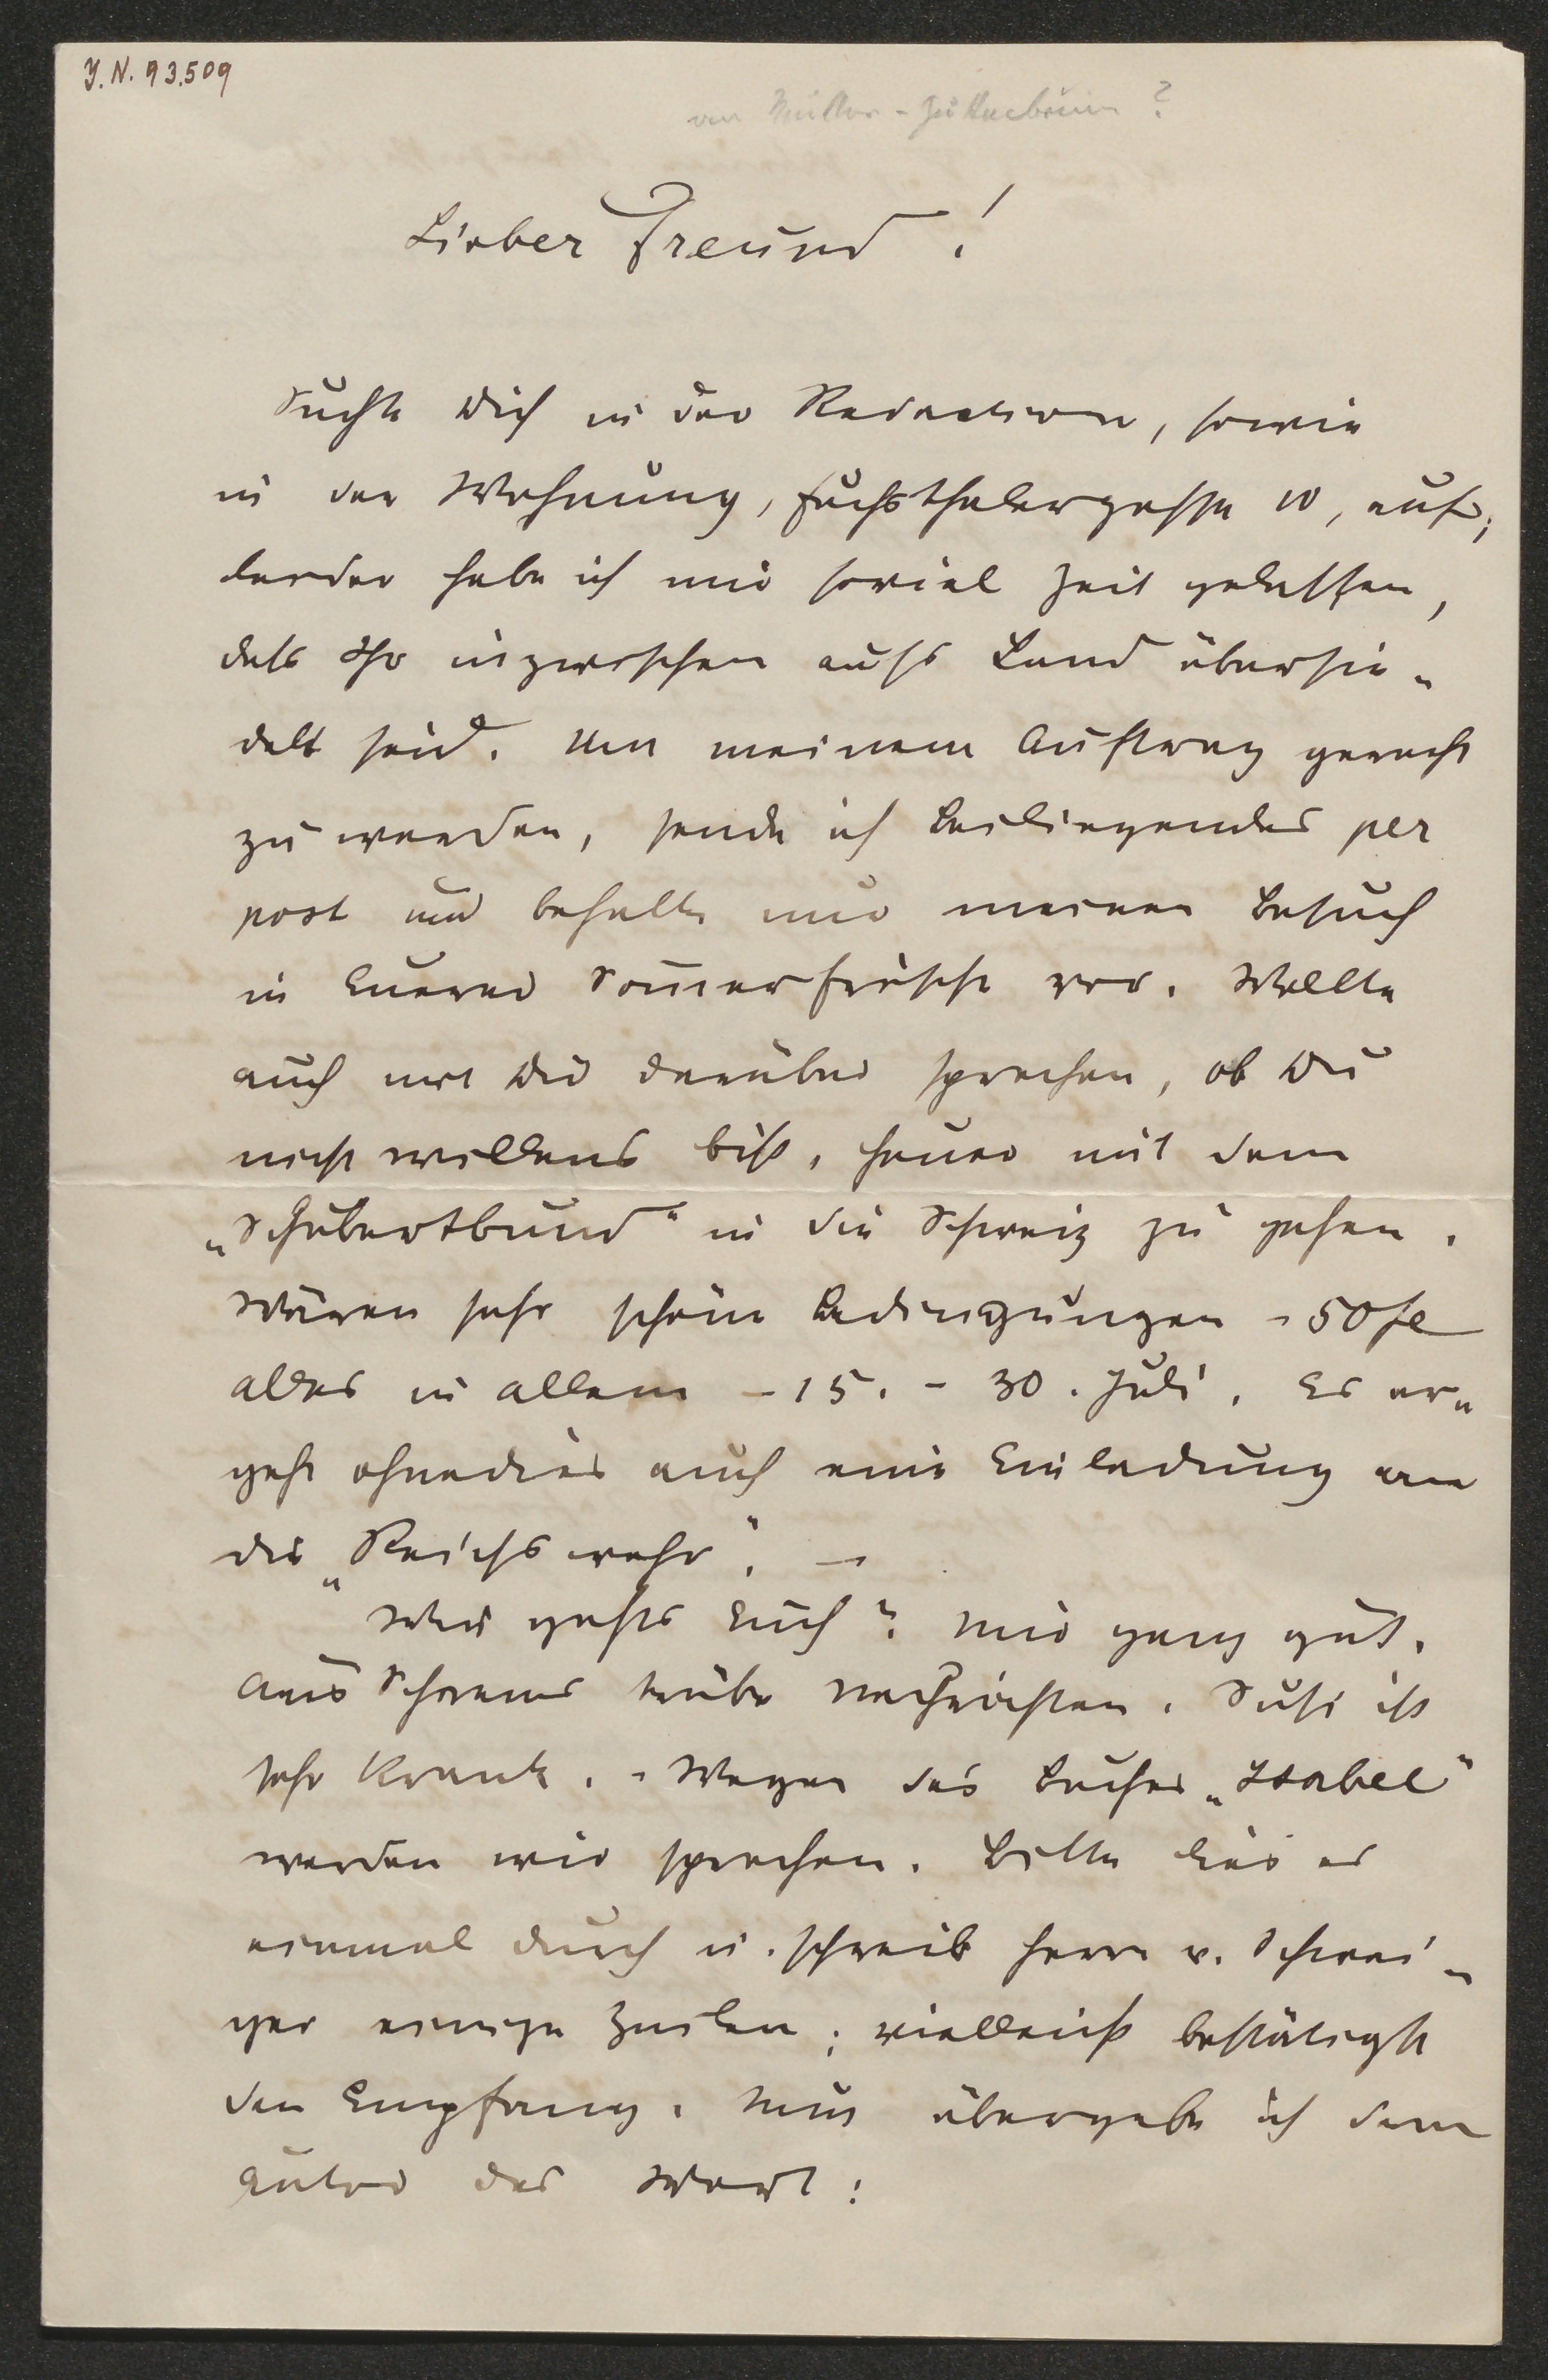 J. N. 93.509
an Müller-Guttenbrunn ?
Lieber Freund!
Suchte Dich in der Redaction, sowie
in der Wohnung, Fuchsthalergasse 10, auf;
leider habe ich mir soviel Zeit gelassen,
dass Ihr inzwischen aufs Land übersie-
delt seid. Um meinem Auftrag gerecht
zu werden, sende ich Beiliegendes per
post und behalte mir meinen Besuch
in Euerer Som̅erfrische vor. Wollte
auch mit Dir darüber sprechen, ob Du
nicht willens bist, heuer mit dem
„Schubertbund“ in die Schweiz zu gehen.
Wären sehr schöne Bedingungen - 50 fl
alles in allem - 15. - 30. Juli. Es er-
geht ohnedies auch eine Einladung an
die „Reichswehr“. -
Wie gehts Euch? Mir ganz gut.
Aus Schrems trübe Nachrichten. Susi ist
sehr krank. - Wegen des Buches „Isabel“
werden wir sprechen. Bitte lies es
einmal durch u. schreib Herrn v. Schwei-
ger einige Zeilen; vielleicht bestätigst
den Empfang. Nun übergebe ich dem
Autor das Wort: